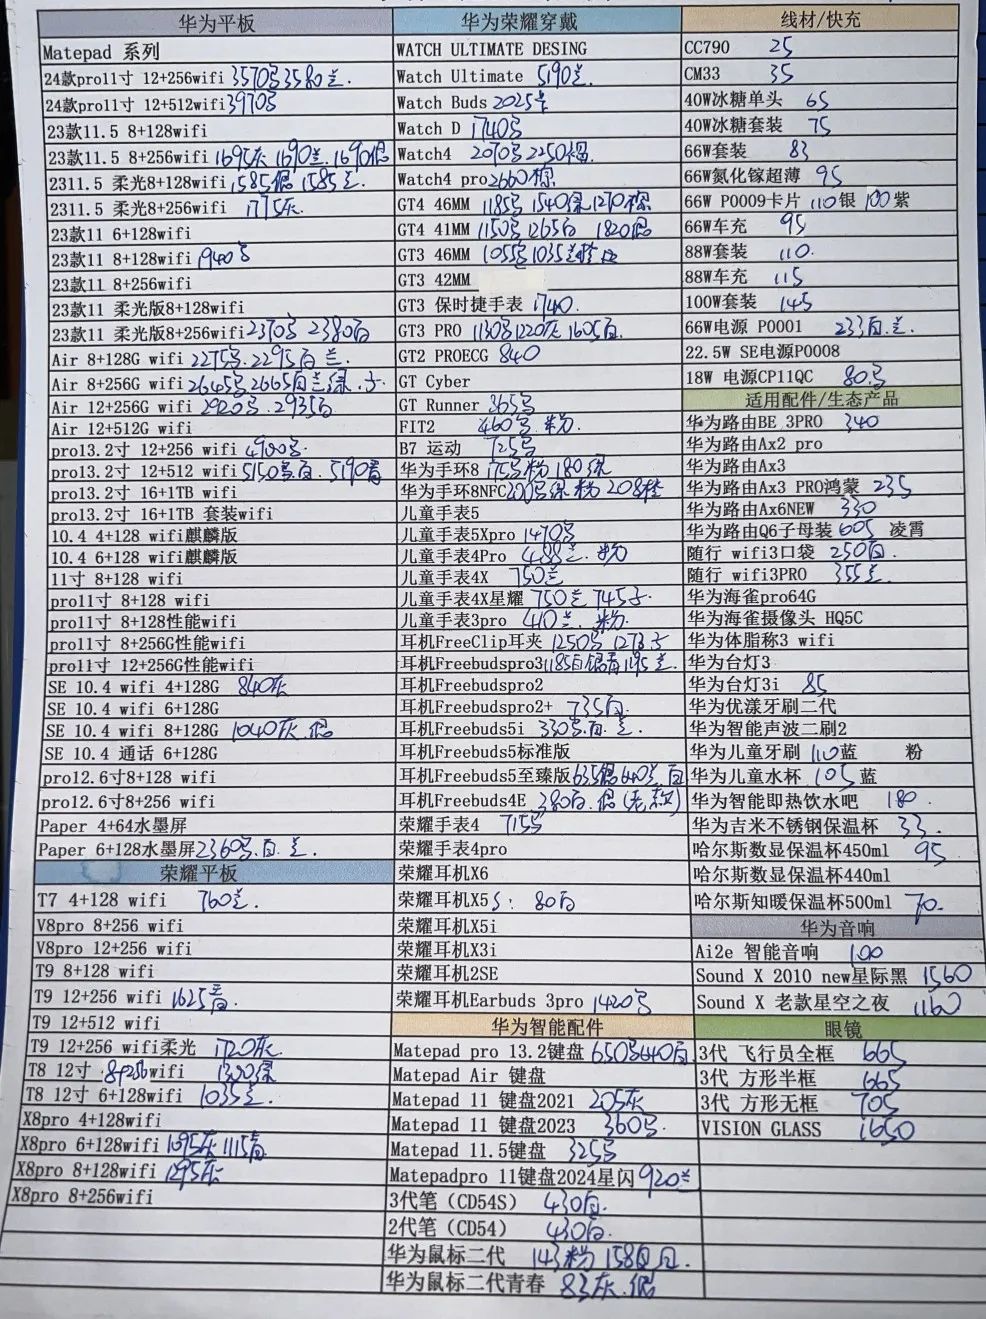 华为平板
Matepad 系列
24款pro11寸 12+256wifi 3570号 3580兰.
24款pro11寸 12+512wifi 3970号
23款11.5 8+128wifi
23款11.5 8+256wifi 1695灰 1690兰. 1690银
2311.5 柔光8+128wifi 1585银 1585兰.
2311.5 柔光8+256wifi 1775灰.
23款11 6+128wifi
23款11 8+128wifi 1940号
23款11 8+256wifi
23款11 柔光版8+128wifi
23款11 柔光版8+256wifi 2370号 2380白
Air 8+128G wifi 2275号. 2295白 兰.
Air 8+256G wifi 2645号 2665白 兰. 绿. 子.
Air 12+256G wifi 2920号. 2935白
Air 12+512G wifi
pro13.2寸 12+256 wifi 4900号.
pro13.2寸 12+512 wifi 5150号. 白. 5190青
pro13.2寸 16+1TB wifi
pro13.2寸 16+1TB 套装wifi
10.4 4+128 wifi麒麟版
10.4 6+128 wifi麒麟版
11寸 8+128 wifi
pro11寸 8+128 wifi
pro11寸 8+128性能wifi
pro11寸 8+256G性能wifi
pro11寸 12+256G性能wifi
SE 10.4 wifi 4+128G 840灰
SE 10.4 wifi 6+128G
SE 10.4 wifi 8+128G 1040灰. 银
SE 10.4 通话 6+128G
pro12.6寸8+128 wifi
pro12.6寸8+256 wifi
Paper 4+64水墨屏
Paper 6+128水墨屏 2360号. 白. 兰.
荣耀平板
T7 4+128 wifi 760兰.
V8pro 8+256 wifi
V8pro 12+256 wifi
T9 8+128 wifi
T9 12+256 wifi 1625青.
T9 12+512 wifi
T9 12+256 wifi柔光 1720灰.
T8 12寸 8+256wifi 1390绿
T8 12寸 6+128wifi 1035兰.
X8pro 4+128wifi
X8pro 6+128wifi 1095灰 1115青
X8pro 8+128wifi 1295灰
X8pro 8+256wifi
华为荣耀穿戴
WATCH ULTIMATE DESING
Watch Ultimate 5190兰.
Watch Buds 2025号
Watch D 1740号
Watch4 2070号 2250棕.
Watch4 pro 2660棕.
GT4 46MM 1185号 1540绿 1270棕
GT4 41MM 1150号. 1265白 1820银
GT3 46MM 1055号 1035兰
GT3 42MM
GT3 保时捷手表 1740.
GT3 PRO 1130号 1220灰 1605白.
GT2 PROECG 840
GT Cyber
GT Runner 365号
FIT2 460号. 粉.
B7 运动 725号
华为手环8 175号 粉 180绿
华为手环8NFC 200号 绿 粉 208橙
儿童手表5
儿童手表5Xpro 1470号
儿童手表4Pro 488兰. 粉
儿童手表4X 750兰
儿童手表4X星耀 750兰 745子.
儿童手表3pro 410兰. 粉.
耳机FreeClip耳夹 1250号 1278子
耳机Freebudspro3 1185白 银 青 1195兰.
耳机Freebudspro2
耳机Freebudspro2+ 735白.
耳机Freebuds5i 330号. 白. 兰.
耳机Freebuds5标准版
耳机Freebuds5至臻版 635银 640号. 白
耳机Freebuds4E 380白. 银 (老款)
荣耀手表4 715号
荣耀手表4pro
荣耀耳机X6
荣耀耳机X5 S: 80白
荣耀耳机X5i
荣耀耳机X3i
荣耀耳机2SE
荣耀耳机Earbuds 3pro 1420号
华为智能配件
Matepad pro 13.2键盘 650号 640白
Matepad Air 键盘
Matepad 11 键盘2021 205灰
Matepad 11 键盘2023 360号.
Matepad 11.5键盘 325号
Matepadpro 11键盘2024星闪 920兰
3代笔（CD54S） 430白.
2代笔（CD54） 430白.
华为鼠标二代 143粉 158白
华为鼠标二代青春 83灰. 银
线材/快充
CC790 25
CM33 35
40W冰糖单头 65
40W冰糖套装 75
66W套装 83
66W氮化镓超薄 95
66W P0009卡片 110银 100紫
66W车充 95
88W套装 110.
88W车充 115
100W套装 145
66W电源 P0001 233白. 兰.
22.5W SE电源P0008
18W 电源CP11QC 80号
适用配件/生态产品
华为路由BE 3PRO 340
华为路由Ax2 pro
华为路由Ax3
华为路由Ax3 PRO鸿蒙 235
华为路由Ax6NEW 330
华为路由Q6子母装 605 凌霄
随行 wifi3口袋 250白.
随行 wifi3PRO 355兰.
华为海雀pro64G
华为海雀摄像头 HQ5C
华为体脂称3 wifi
华为台灯3
华为台灯3i 85
华为优漾牙刷二代
华为智能声波二刷2
华为儿童牙刷 110蓝 粉
华为儿童水杯 105蓝
华为智能即热饮水吧 180.
华为吉米不锈钢保温杯 33.
哈尔斯数显保温杯450ml 95
哈尔斯数显保温杯440ml
哈尔斯知暖保温杯500ml 70.
华为音响
Ai2e 智能音响 100
Sound X 2010 new星际黑 1560
Sound X 老款星空之夜 1160
眼镜
3代 飞行员全框 665
3代 方形半框 665
3代 方形无框 705
VISION GLASS 1650